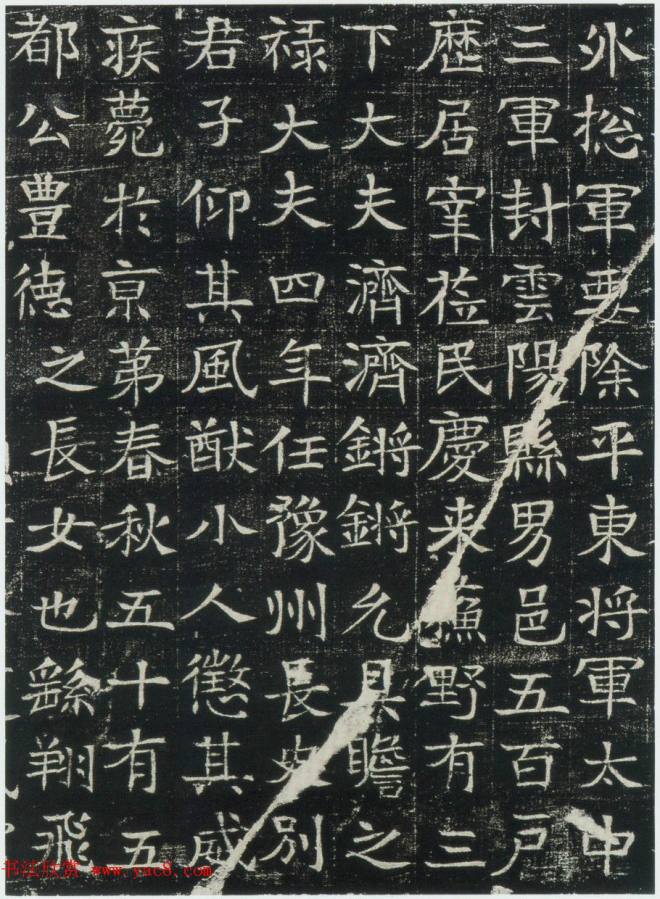 揔軍要除平東将軍太中
三軍封雲陽縣男邑五百戸
歴居宰莅民慶来蘓野有三
下大夫濟濟鏘鏘允具瞻之
禄大夫四年任豫州長史别
君子仰其風猷小人懲其威
疾薨於京苐春秋五十有五
都公豊徳之長女也繇翔飛
书法欣赏 www.yac8.com